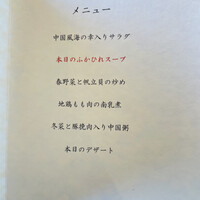 メニュー
中国風海の幸入りサラダ
本日のふかひれスープ
春野菜と帆立貝の炒め
地鶏もも肉の南乳煮
冬菜と豚挽肉入り中国粥
本日のデザート